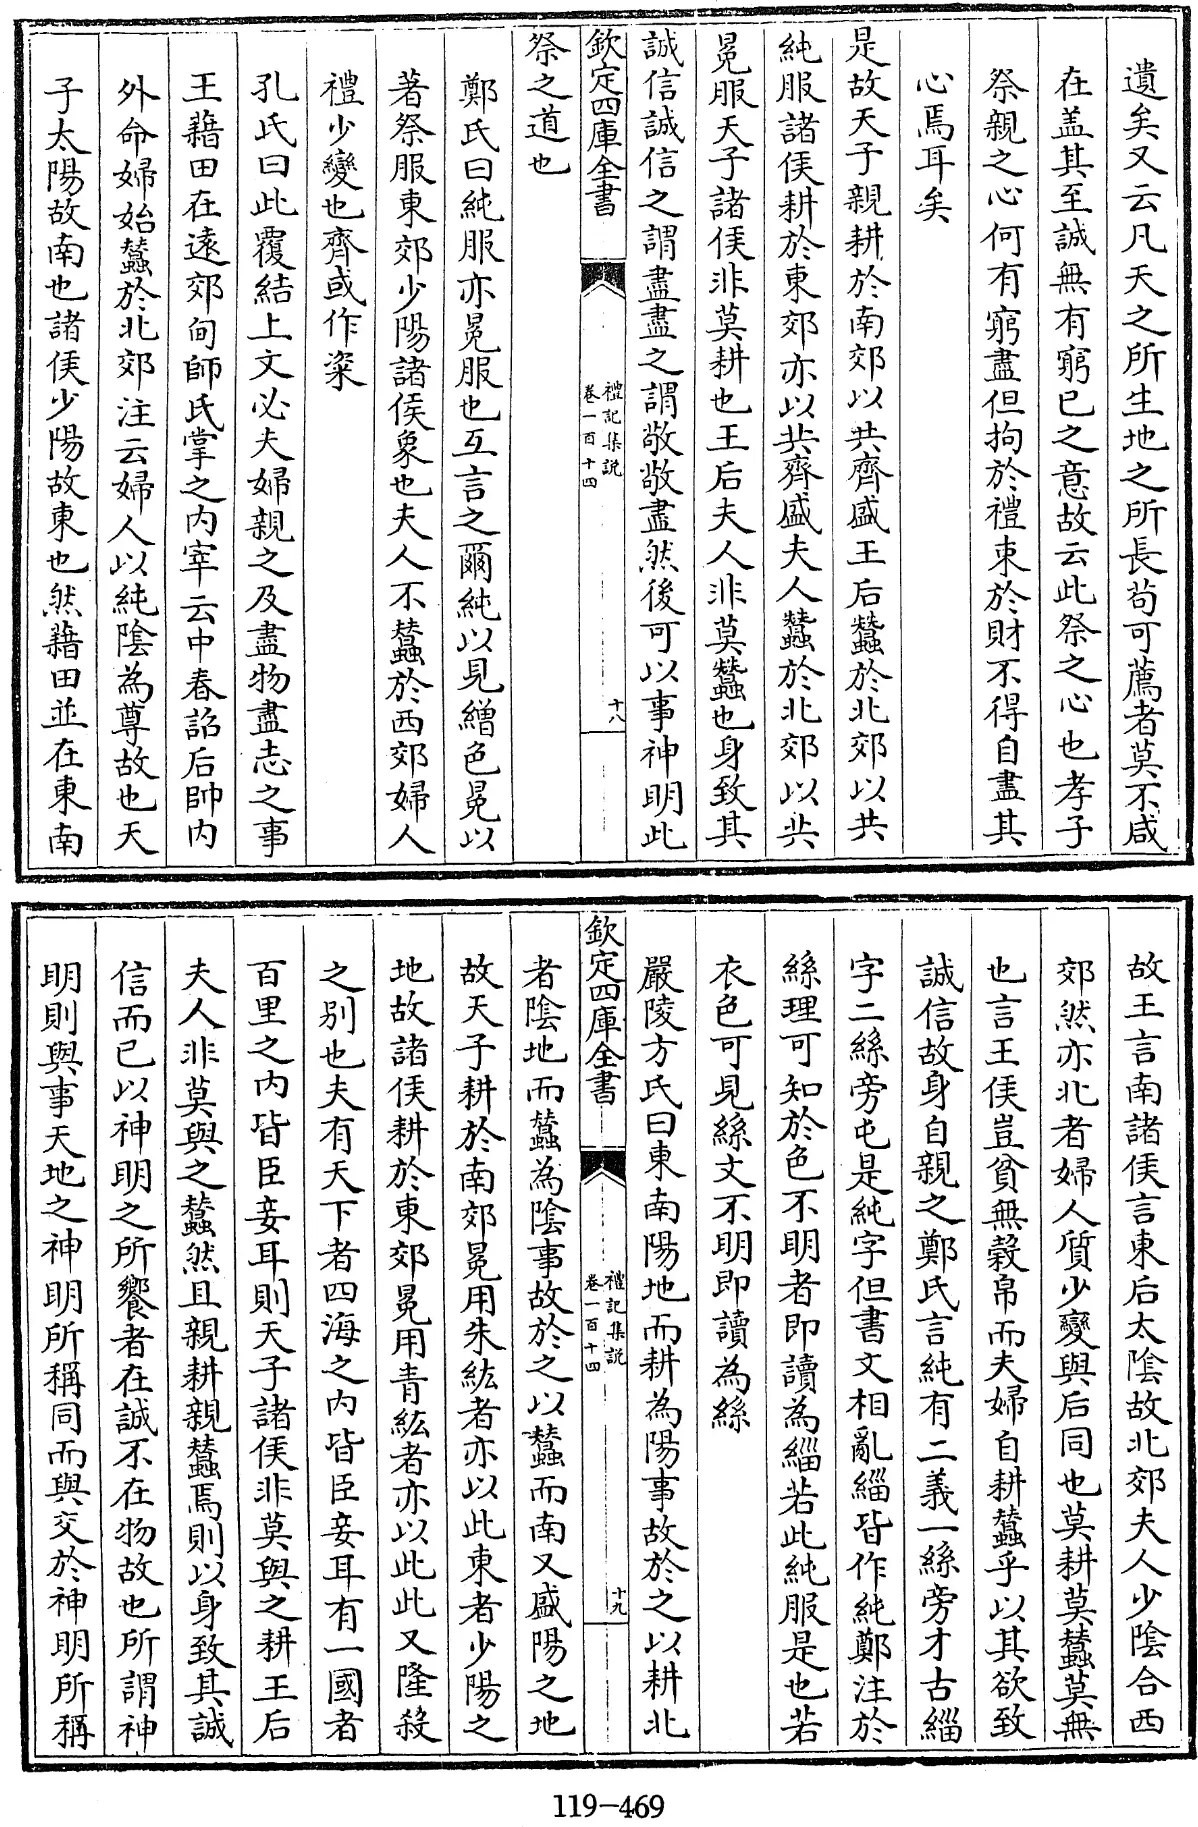 遺矣又云凡天之所生地之所長茍可薦者莫不咸
在盖其至誠無有窮已之意故云此祭之心也孝子
祭親之心何有窮盡但拘於禮束於財不得自盡其
心焉耳矣
是故天子親耕於南郊以共齊盛王后蠶於北郊以共
純服諸侯耕於東郊亦以共齊盛夫人蠶於北郊以共
冕服天子諸侯非莫耕也王后夫人非莫蠶也身致其
誠信誠信之謂盡盡之謂敬敬盡然後可以事神明此
欽定四庫全書
禮記集説
卷一百十四
十八
祭之道也
鄭氏曰純服亦冕服也互言之爾純以見繒色冕以
著祭服東郊少陽諸侯象也夫人不蠶於西郊婦人
禮少變也齊或作粢
孔氏曰此覆結上文必夫婦親之及盡物盡志之事
王藉田在遠郊甸師氏掌之内宰云中春詔后帥内
外命婦始蠶於北郊注云婦人以純陰為尊故也天
子太陽故南也諸侯少陽故東也然藉田並在東南
故王言南諸侯言東后太陰故北郊夫人少陰合西
郊然亦北者婦人質少變與后同也莫耕莫蠶莫無
也言王侯豈貧無穀帛而夫婦自耕蠶乎以其欲致
誠信故身自親之鄭氏言純有二義一絲旁才古緇
字二絲旁屯是純字但書文相亂緇皆作純鄭注於
絲理可知於色不明者即讀為緇若此純服是也若
衣色可見絲文不明即讀為絲
嚴陵方氏曰東南陽地而耕為陽事故於之以耕北
欽定四庫全書
禮記集説
卷一百十四
十九
者陰地而蠶為陰事故於之以蠶而南又盛陽之地
故天子耕於南郊冕用朱紘者亦以此東者少陽之
地故諸侯耕於東郊冕用青紘者亦以此此又隆殺
之别也夫有天下者四海之内皆臣妾耳有一國者
百里之内皆臣妾耳則天子諸侯非莫與之耕王后
夫人非莫與之蠶然且親耕親蠶焉則以身致其誠
信而已以神明之所饗者在誠不在物故也所謂神
明則與事天地之神明所稱同而與交於神明所稱
119-469